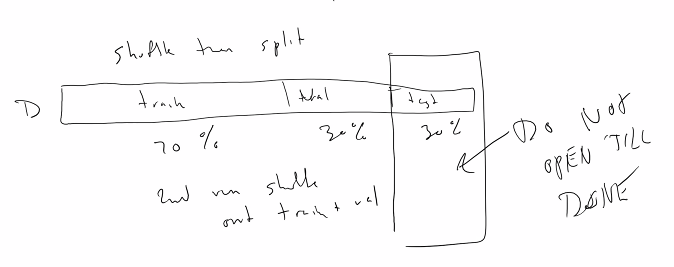 shuffle then split
D train val test
70 % 30% 30%
DO NOT
OPEN TILL
DONE
2nd run shuffle
out train + val